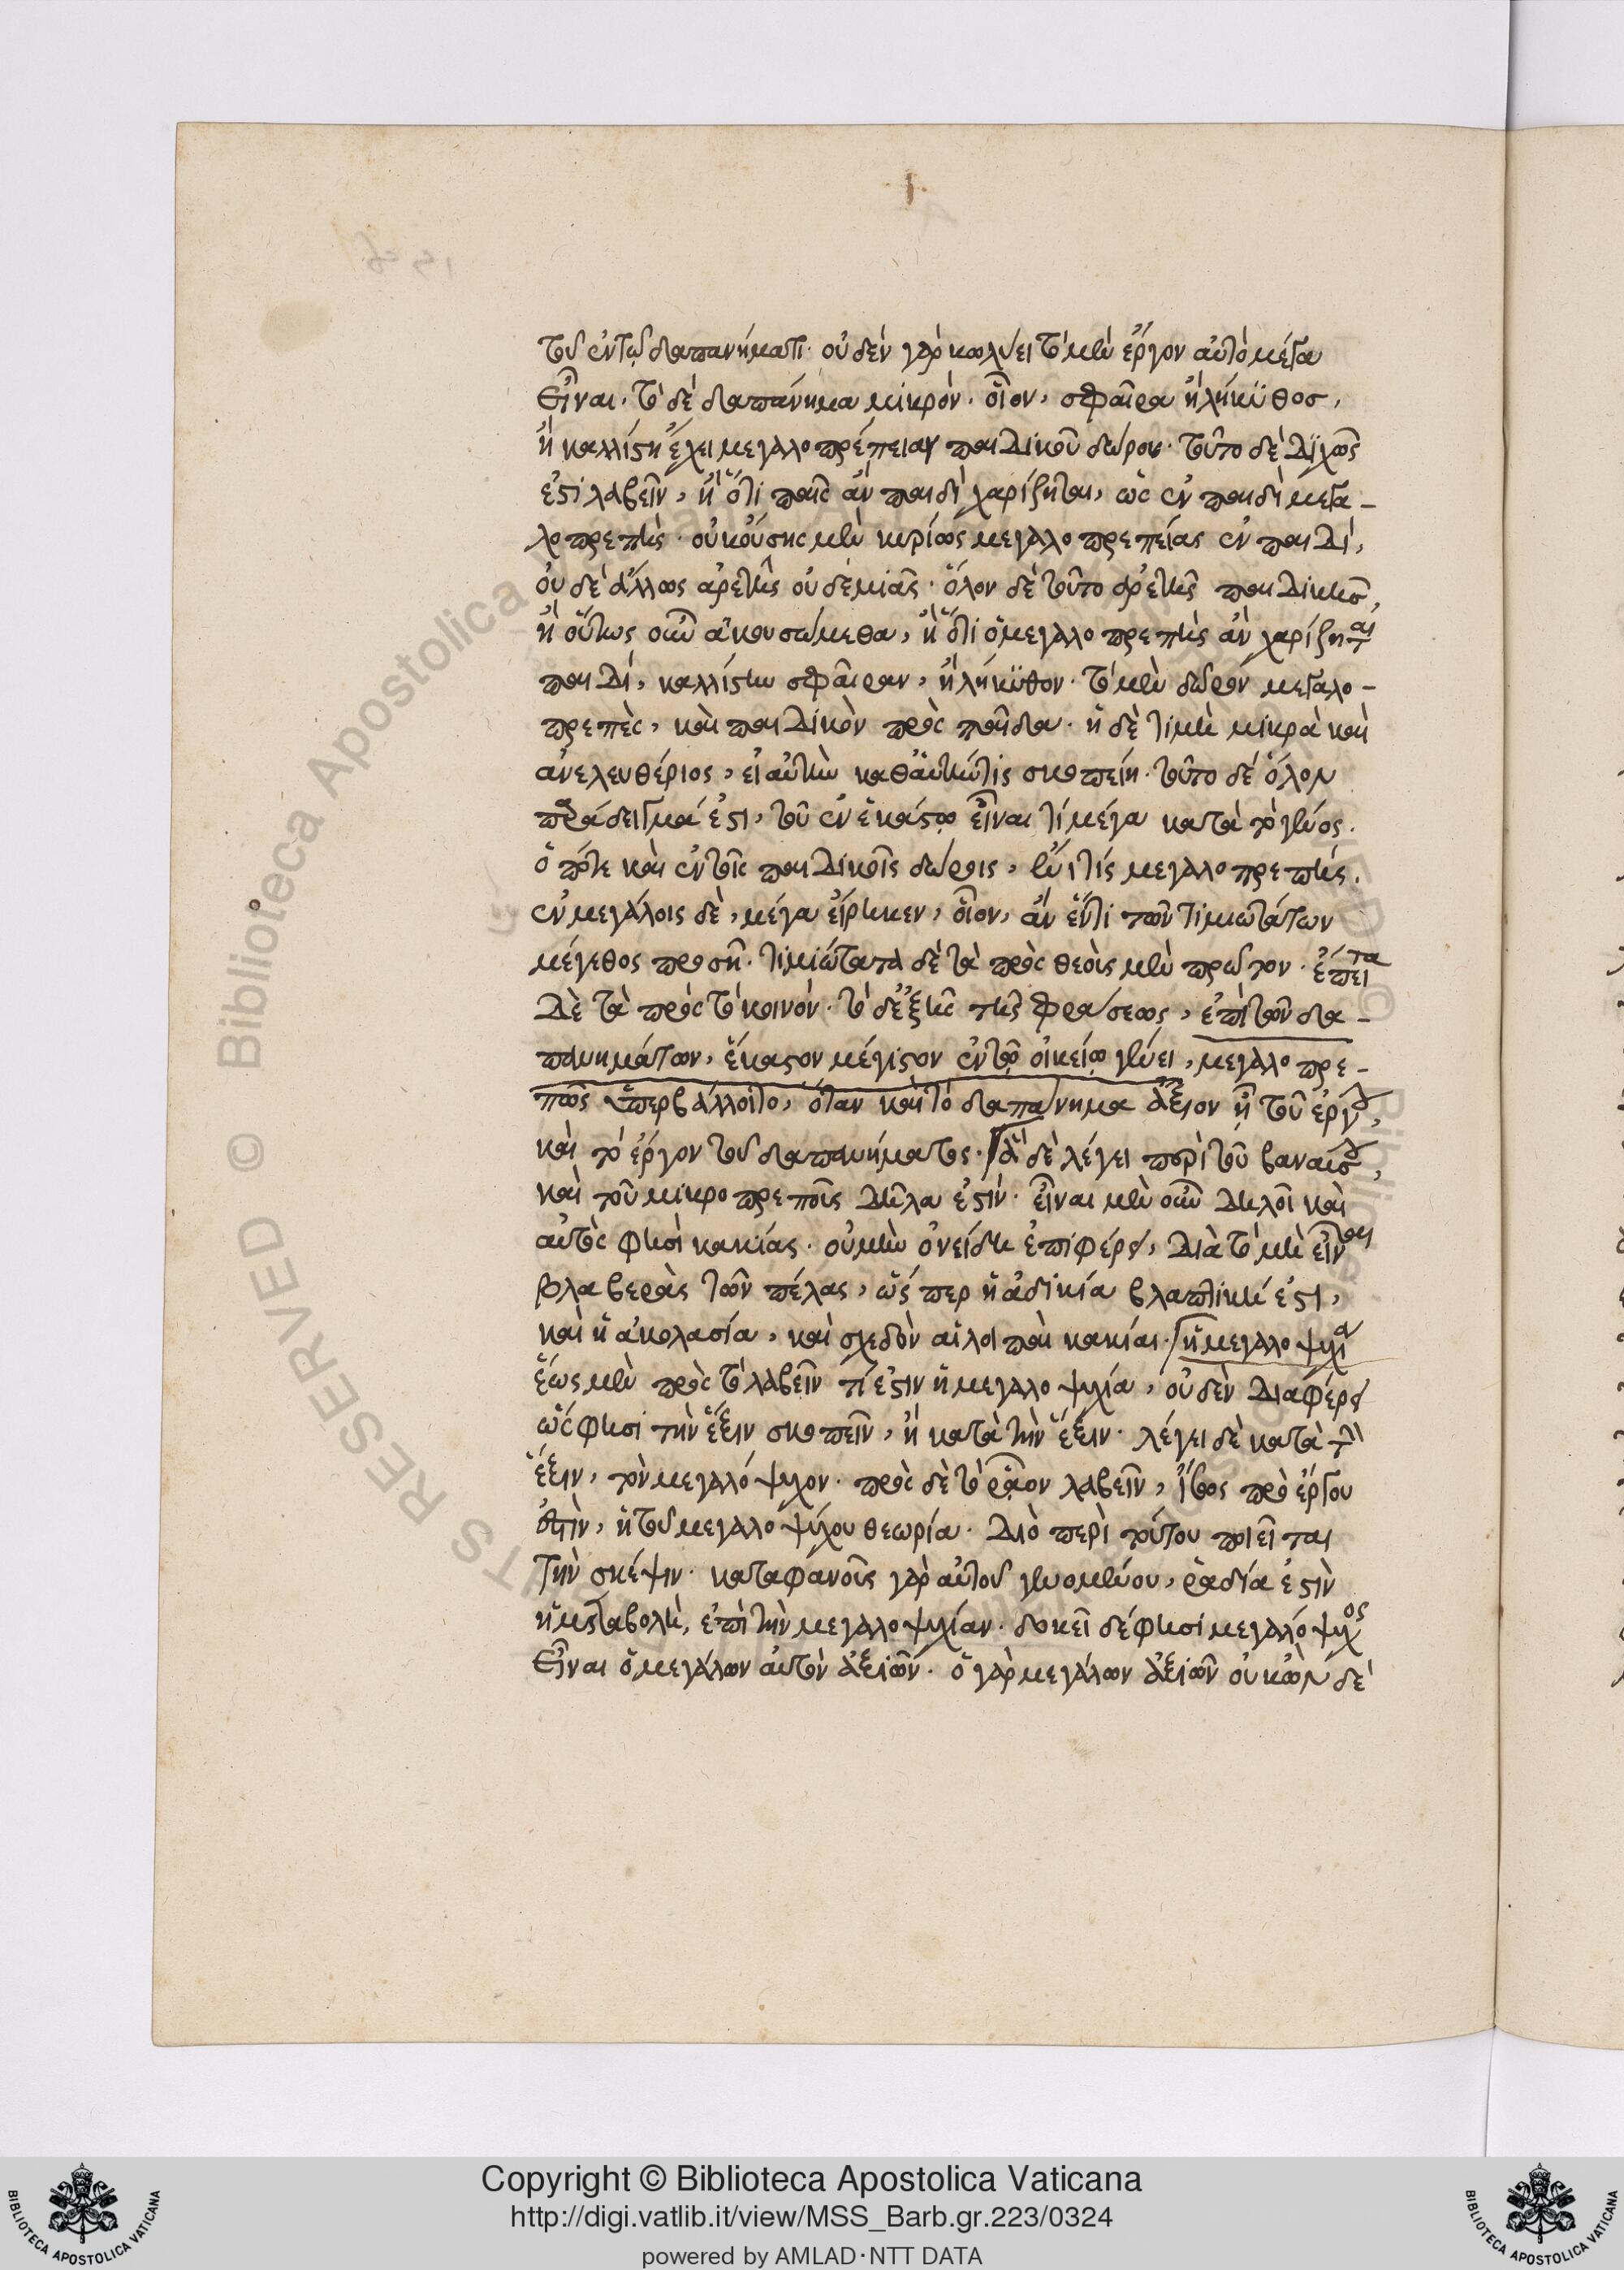 τοῦ ἐν τῷ δαπανήματι· οὐδὲν γὰρ κωλύει τὸ μὲν ἔργον αὐτὸ μέγα
εἶναι· τὸ δὲ δαπάνημα μικρόν· οἷον, σφαῖρα ἢ λήκυθος,
ἢ καλλίστη ἔχει μεγαλοπρέπειαν παιδικοῦ δώρου· τοῦτο δὲ διχῶς
ἐστὶ λαβεῖν, ἢ ὅτι παῖς ἂν παιδὶ χαρίζηται, ὡς ἐν παιδὶ μεγα-
λοπρεπής· οὐκ οὔσης μὲν κυρίως μεγαλοπρεπείας ἐν παιδί,
οὐδὲ ἄλλως ἀρετῆς οὐδεμιᾶς· ὅλον δὲ τοῦτο ἀρετῆς παιδικῆς,
ἢ οὕτως οὖν ἀκουσώμεθα, ἢ ὅτι ὁ μεγαλοπρεπὴς ἂν χαρίζηται
παιδί, καλλίστην σφαῖραν, ἢ λήκυθον· τὸ μὲν δῶρον μεγαλο-
πρεπὲς, καὶ παιδικὸν πρὸς παῖδα· ἡ δὲ τιμὴ μικρὰ καὶ
ἀνελευθέριος, εἰ αὐτὴν καθ' αὑτήν τις σκοπείη· τοῦτο δὲ ὅλον
παράδειγμά ἐστι, τοῦ ἐν ἑκάστῳ εἶναί τι μέγα κατὰ τὸ γένος·
ὅ ποτε καὶ ἐν τοῖς παιδικοῖς δώροις, ἔνι τις μεγαλοπρεπής.
ἐν μεγάλοις δὲ, μέγα εἴρηκεν, οἷον, ἂν ἔν τι τῶν τιμιωτάτων
μέγεθος προσῇ· τιμιώτατα δὲ τὰ πρὸς θεοὺς μὲν πρῶτον· ἔπειτα
δὲ τὰ πρὸς τὸ κοινόν· τὸ δὲ ἑξῆς τῆς φράσεως, ἐπὶ τῶν δα-
πανημάτων, ἕκαστον μέγιστον ἐν τῷ οἰκείῳ γένει, μεγαλοπρε-
πῶς ὑπερβάλλοιτο, ὅταν καὶ τὸ δαπάνημα ἄξιον ᾖ τοῦ ἔργου,
καὶ τὸ ἔργον τοῦ δαπανήματος· ἃ δὲ λέγει περὶ τοῦ βαναύσου,
καὶ τοῦ μικροπρεποῦς δῆλα ἐστίν· εἶναι μὲν οὖν δηλοῖ καὶ
αὐτός φησὶ κακίας· οὐ μὴν ὀνείδη ἐπιφέρει, διὰ τὸ μὴ εἶναι
βλαβερὰς τῶν πέλας, ὥσπερ ἡ ἀδικία βλαπτική ἐστι,
καὶ ἡ ἀκολασία, καὶ σχεδὸν αἱ λοιπαὶ κακίαι· ἡ μεγαλοψυχία
ἕως μὲν πρὸς τὸ λαβεῖν τί ἐστιν ἡ μεγαλοψυχία, οὐδὲν διαφέρει
ὥς φησι τὴν ἕξιν σκοπεῖν, ἢ κατὰ τὴν ἕξιν· λέγει δὲ κατὰ τὴν
ἕξιν, τὸν μεγαλόψυχον· πρὸς δὲ τὸ ῥᾷον λαβεῖν, ἴσως πρὸ ἔργου
ἐστὶν, ἡ τοῦ μεγαλοψύχου θεωρία· διὸ περὶ τούτου ποιεῖται
τὴν σκέψιν· καταφανοῦς γὰρ αὐτοῦ γενομένου, ῥᾳδία ἐστὶν
ἡ μεταβολὴ, ἐπὶ τὴν μεγαλοψυχίαν· δοκεῖ δέ φησι μεγαλόψυχος
εἶναι ὁ μεγάλων αὑτὸν ἀξιῶν· ὁ γὰρ μεγάλων ἀξιῶν οὐκ ὢν δὲ
Copyright © Biblioteca Apostolica Vaticana
http://digi.vatlib.it/view/MSS_Barb.gr.223/0324
powered by AMLAD·NTT DATA